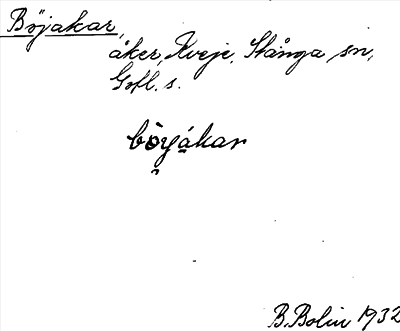 Böjakar,
åker, Kveje, Stånga sn,
Gotl. s.
böyákar
B. Bolin 1932